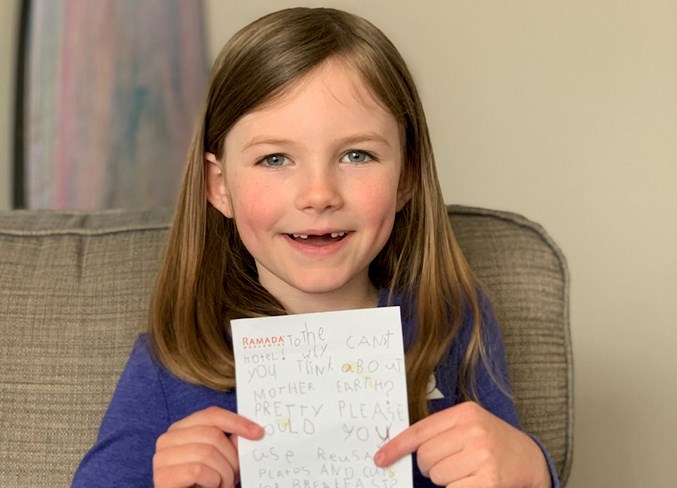 RAMADA To The
WORLDWIDE
HOTEL! WLY CANT
YOU THINk aBOUT
MOTHER EARTH?
PRETTY PLEASE
OULD YOU
USE REUSA
PLATES AND CU
FOR BREKFAST?